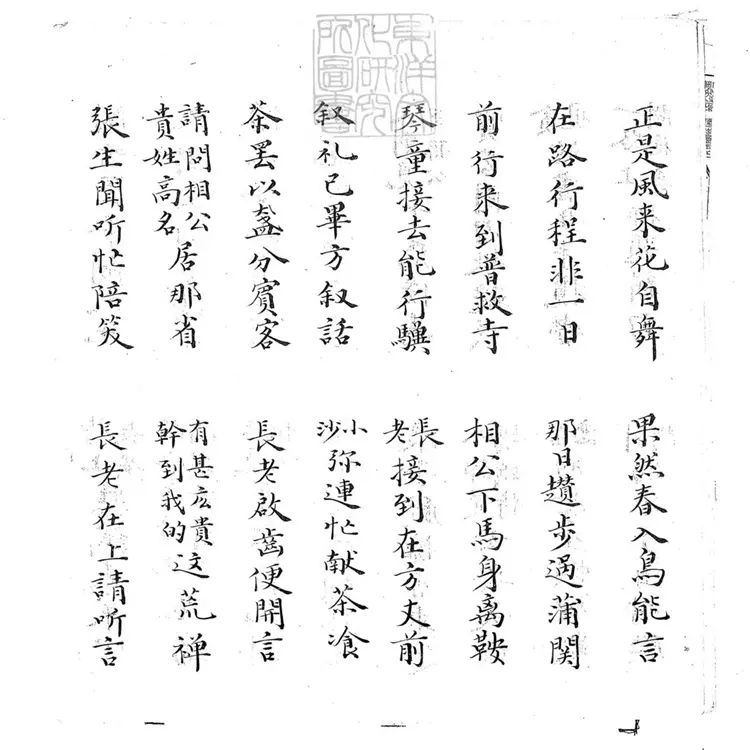 正是風来花自舞 果然春入鳥能言
在路行程非一日 那日趲步過蒲関
前行来到普救寺 相公下馬身离鞍
琴童接去能行驥 長老接到在方丈前
叙礼已畢方叙話 小沙弥連忙献茶飡
茶罢以盞分賓客 長老啟齒便開言
請問相公貴姓高名居那省 有甚庅貴幹到我的这荒禅
張生聞听忙陪笑 長老在上請听言